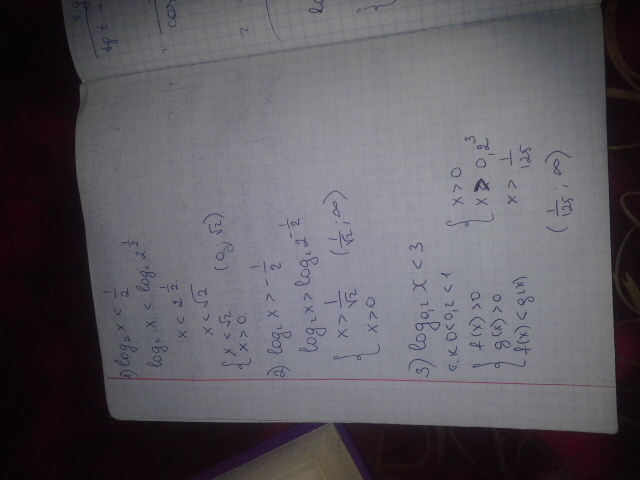 1) log₂ x < 1/2
log₂ x < log₂ 2^(1/2)
x < 2^(1/2)
x < √2
{ x < √2
x > 0. (0; √2)
2) log₂ x > -1/2
log₂ x > log₂ 2^(-1/2)
{ x > 1/√2 (1/√2; ∞)
x > 0
3) log₀,₂ x < 3
т.к 0<0,2<1
{ f(x) > 0
g(x) > 0
f(x) < g(x)
{ x > 0
x > 0,2³
x > 1/125
(1/125; ∞)
tg t +
cos